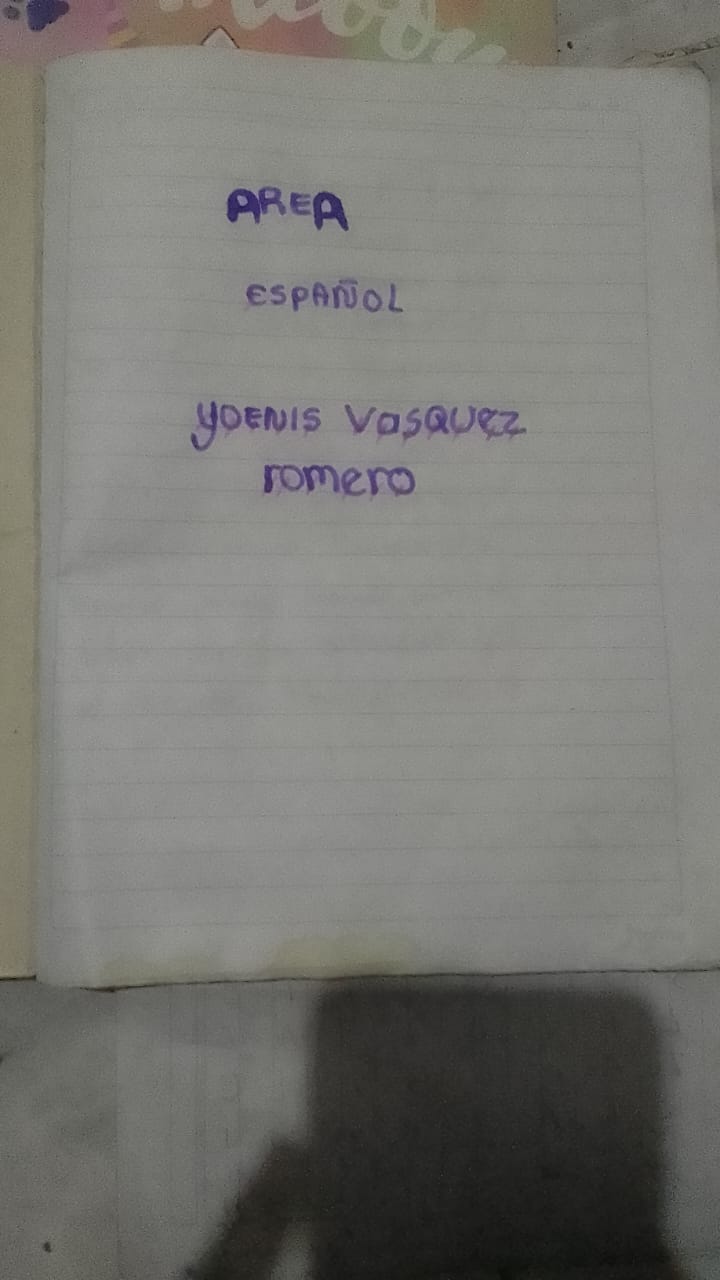 AREA
ESPAÑOL
YOENIS VasQUEZ
romero